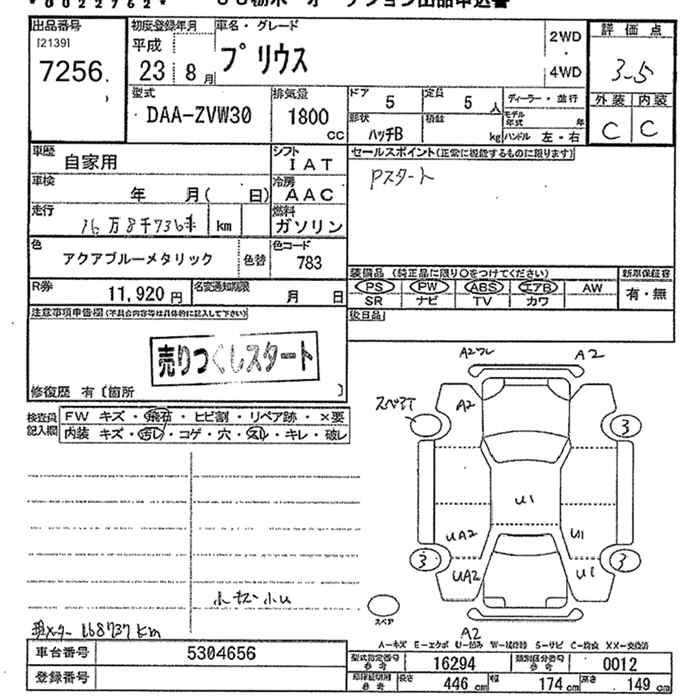 *0022762*
出品番号
[2139]
7256
初度登録年月
平成
23 8月
車名・グレード
プリウス
2WD
4WD
評価点
3-5
外装 内装
C C
型式
DAA-ZVW30
排気量
1800
CC
ドア
5
定員
5 人
ディーラー・並行
形状
ハッチB
積載
kg
モデル年式 年
ハンドル 左・右
車歴
自家用
シフト
IAT
車検
年 月( 日)
冷房
AAC
走行
km
燃料
ガソリン
色
アクアブルーメタリック
色替
色コード
783
セールスポイント(正常に機能するものに限ります)
Pスタート
装備品 (純正品に限り〇をつけてください)
PS PW ABS エアB AW
SR ナビ TV カワ
新車保証書
有・無
R券
11,920 円
名変通知期限
月 日
後日品
注意事項申告欄(不具合内容等は具体的に記入して下さい)
売りつくしスタート
修復歴 有 〔箇所 〕
検査員記入欄
FW キズ・飛石・ヒビ割・リペア跡・×要
内装 キズ・汚レ・コゲ・穴・スレ・キレ・破レ
A2ワレ
A2
スペアT
A2
3
U1
UA2
U1
3
3
UA2
U1
小キズ・小U
スペア
A2
現メーター 168737km
A-キズ E-エクボ U-凹み W-補修跡 S-サビ C-腐食 XX-交換済
車台番号
5304656
登録番号
型式指定番号
参考
16294
類別区分番号
参考
0012
車体寸法
参考
長さ 446 cm
幅 174 cm
高さ 149 cm